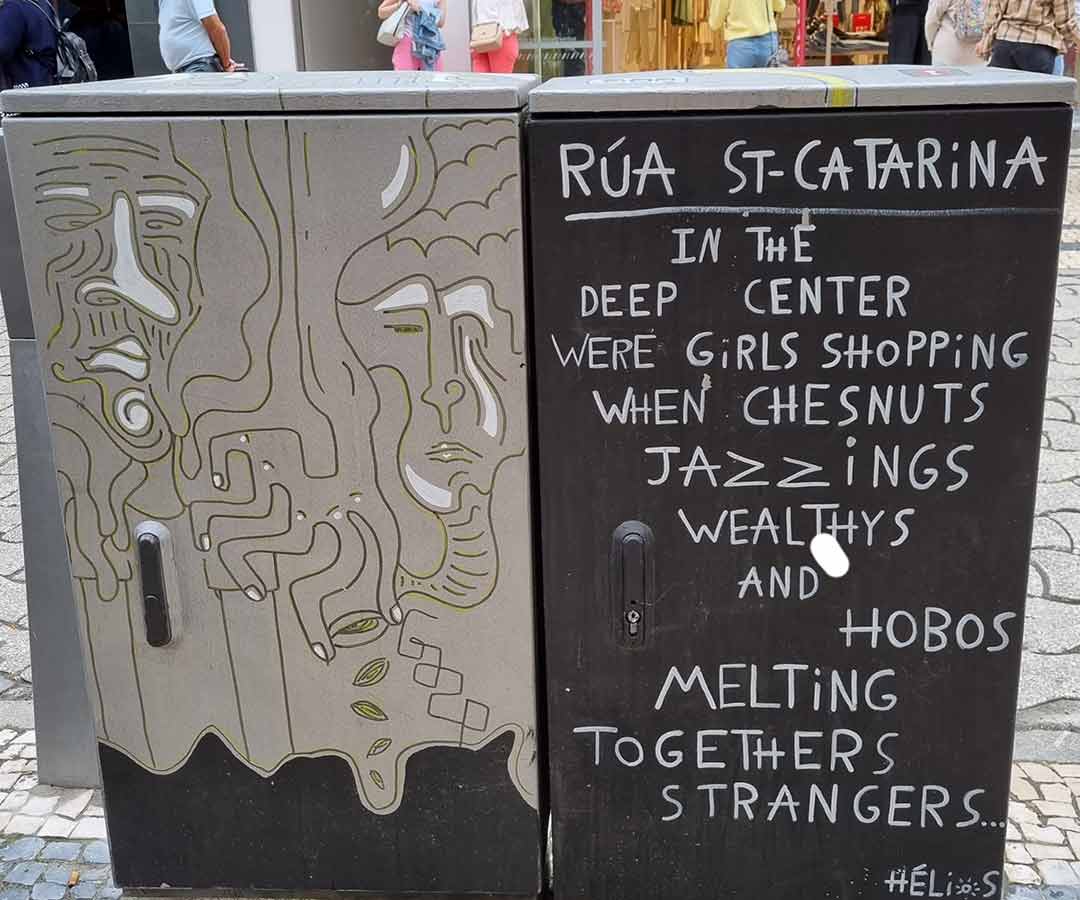 RÚA ST-CATARiNA
IN THE
DEEP CENTER
WERE GiRLS SHOPPiNG
WHEN CHESNUTS
JAZZiNGS
WEALTHYS
AND
HOBOS
MELTiNG
TOGETHERS
STRANGERS...
HÉLiOS